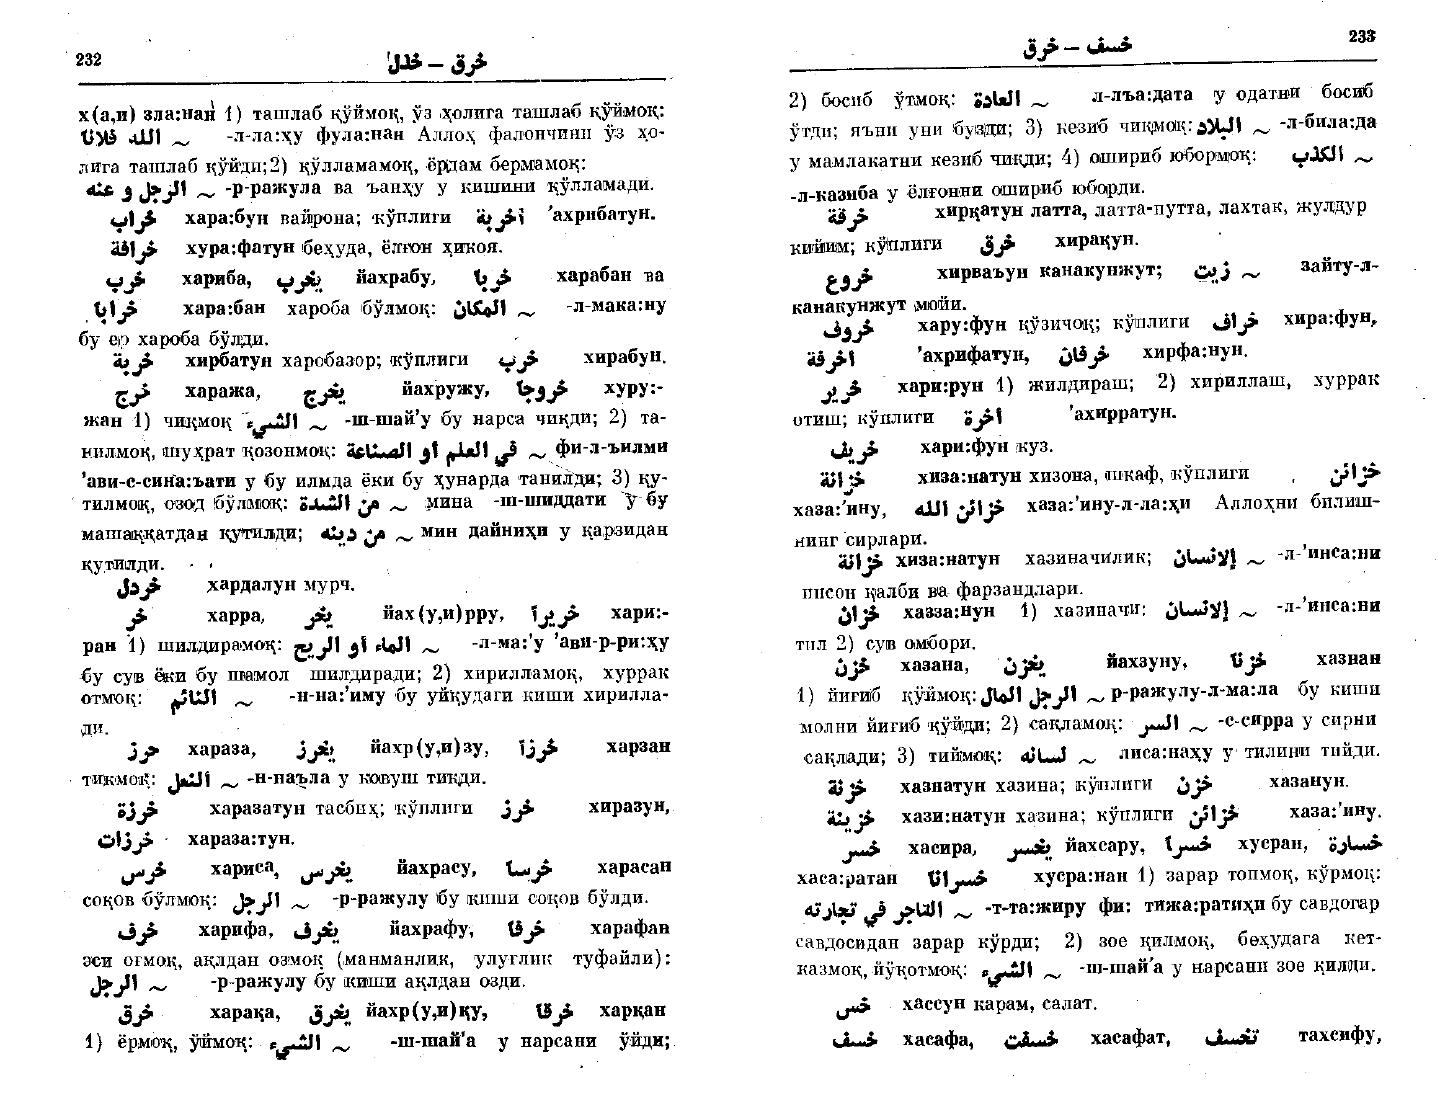 232
خرق – خذل
х(а,и) зла:нан 1) ташлаб қўймоқ, ўз ҳолига ташлаб қўймоқ:
الله فلانا ~ -л-ла:ҳу фула:нан Аллоҳ фалончини ўз ҳо-
лига ташлаб қўйди; 2) қўлламамоқ, ёрдам бермамоқ:
الرجل و عنه ~ -р-ражула ва ъанҳу у кишини қўлламади.
خراب хара:бун вайрона; кўплиги أخربة ’ахрибатун.
خرافة хура:фатун беҳуда, ёлғон ҳикоя.
خرب хариба, يخرب йахрабу, خربا харабан ва
خرابا хара:бан хароба бўлмоқ: المكان ~ -л-мака:ну
бу ер хароба бўлди.
خربة хирбатун харобазор; кўплиги خرب хирабун.
خرج хаража, يخرج йахружу, خروجا хуру:-
жан 1) чиқмоқ الشيء ~ -ш-шай’у бу нарса чиқди; 2) та-
нилмоқ, шуҳрат қозонмоқ: في العلم أو الصناعة ~ фи-л-ъилми
’ави-с-сина:ъати у бу илмда ёки бу ҳунарда танилди; 3) қу-
тилмоқ, озод бўлмоқ: من الشدة ~ мина -ш-шиддати у бу
машаққатдан қутилди; من دينه ~ мин дайниҳи у қарзидан
қутилди.
خردل хардалун мурч.
خر харра, يخر йах(у,и)рру, خريرا хари:-
ран 1) шилдирамоқ: الماء أو الريح ~ -л-ма:’у ’ави-р-ри:ҳу
бу сув ёки бу шамол шилдиради; 2) хирилламоқ, хуррак
отмоқ: النائم ~ -н-на:’иму бу уйқудаги киши хирилла-
ди.
خرز хараза, يخرز йахр(у,и)зу, خرزا харзан
тикмоқ: النعل ~ -н-наъла у ковуш тикди.
خرزة харазатун тасбиҳ; кўплиги خرز хиразун,
خرزات хараза:тун.
خرس хариса, يخرس йахрасу, خرسا харасан
соқов бўлмоқ: الرجل ~ -р-ражулу бу киши соқов бўлди.
خرف харифа, يخرف йахрафу, خرفا харафан
эси оғмоқ, ақлдан озмоқ (манманлик, улуғлик туфайли):
الرجل ~ -р-ражулу бу киши ақлдан озди.
خرق харақа, يخرق йахр(у,и)қу, خرقا харқан
1) ёрмоқ, ўймоқ: الشيء ~ -ш-шай’а у нарсани ўйди;
233
خسف – خرق
2) босиб ўтмоқ: العادة ~ л-лъа:дата у одатни босиб
ўтди; яъни уни бузди; 3) кезиб чиқмоқ: البلاد ~ -л-била:да
у мамлакатни кезиб чиқди; 4) ошириб юбормоқ: الكذب ~
-л-казиба у ёлғонни ошириб юборди.
خرقة хирқатун латта, латта-путта, лахтак, жулдур
кийим; кўплиги خرق хирақун.
خروع хирваъун канакунжут; زيت ~ зайту-л-
канакунжут мойи.
خروف хару:фун қўзичоқ; кўплиги خراف хира:фун,
اخرفة ’ахрифатун, خرفان хирфа:нун.
خرير хари:рун 1) жилдираш; 2) хириллаш, хуррак
отиш; кўплиги اخرة ’ахирратун.
خريف хари:фун куз.
خزانة хиза:натун хизона, шкаф, кўплиги خزائن
хаза:’ину, خزائن الله хаза:’ину-л-ла:ҳи Аллоҳни билиш-
нинг сирлари.
خزانة хиза:натун хазиначилик; الإنسان ~ -л-’инса:ни
инсон қалби ва фарзандлари.
خزان хазза:нун 1) хазиначи: الإنسان ~ -л-’инса:ни
тил 2) сув омбори.
خزن хазана, يخزن йахзуну, خزنا хазнан
1) йиғиб қўймоқ: الرجل المال ~ р-ражулу-л-ма:ла бу киши
молни йиғиб қўйди; 2) сақламоқ: السر ~ -с-сирра у сирни
сақлади; 3) тиймоқ: لسانه ~ лиса:наҳу у тилини тийди.
خزنة хазнатун хазина; кўплиги خزن хазанун.
خزينة хази:натун хазина; кўплиги خزائن хаза:’ину.
خسر хасира, يخسر йахсару, خسرا хусран, خسارة
хаса:ратан خسرانا хусра:нан 1) зарар топмоқ, кўрмоқ:
التاجر في تجارته ~ -т-та:жиру фи: тижа:ратиҳи бу савдогар
савдосидан зарар кўрди; 2) зое қилмоқ, беҳудага кет-
казмоқ, йўқотмоқ: الشيء ~ -ш-шай’а у нарсани зое қилди.
خس хассун карам, салат.
خسف хасафа, خسفت хасафат, تخسف тахсифу,